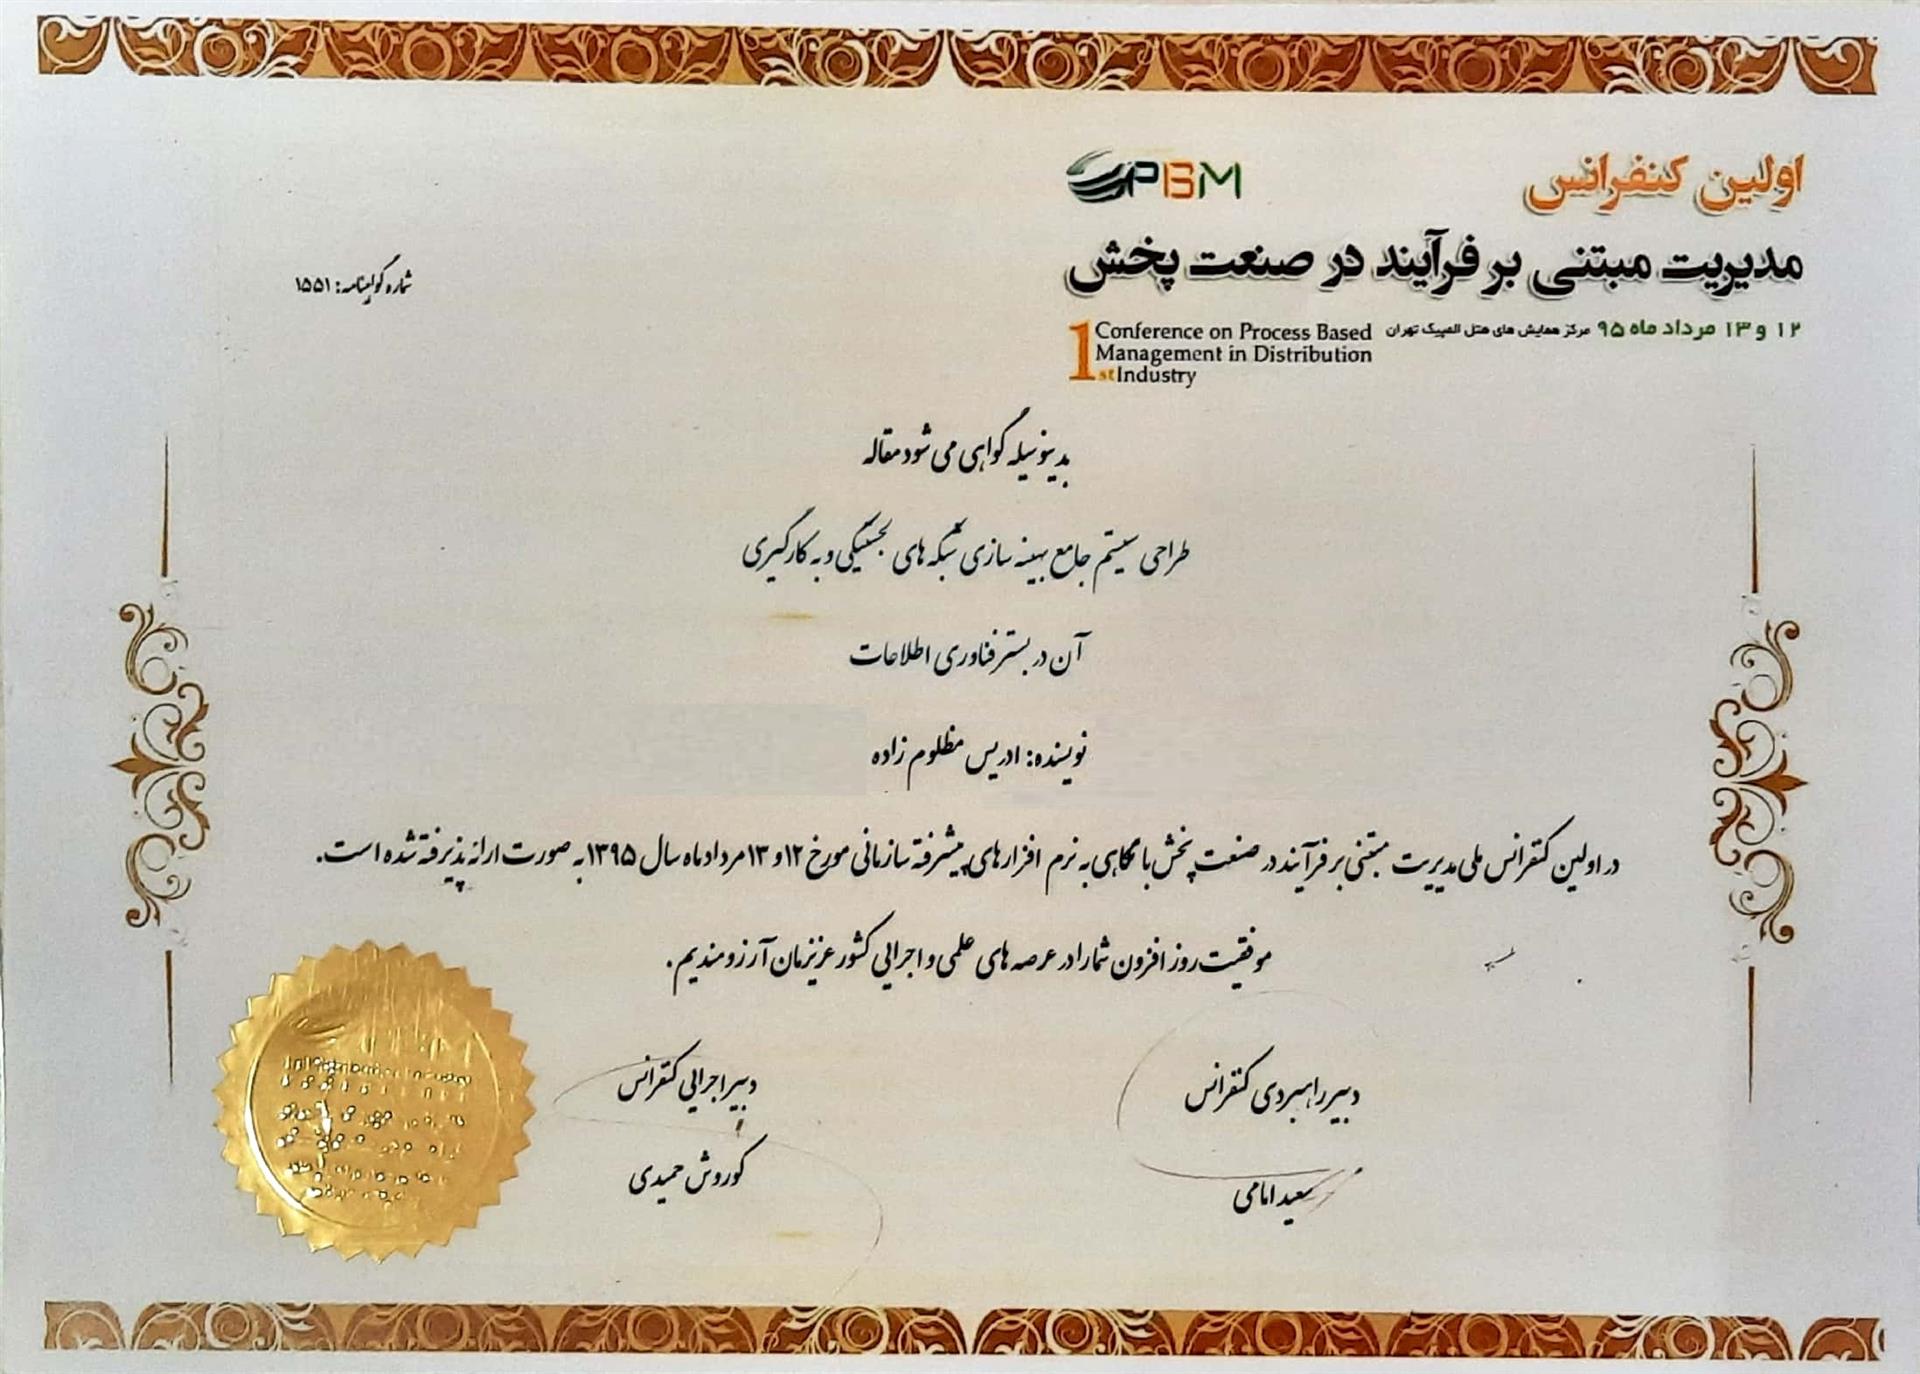 اولین کنفرانس
PBM
مدیریت مبتنی بر فرآیند در صنعت پخش
۱۲ و ۱۳ مرداد ماه ۹۵ مرکز همایش های هتل المپیک تهران
1st Conference on Process Based
Management in Distribution
Industry
شماره گواهینامه: ۱۵۵۱
بدینوسیله گواهی می شود مقاله
طراحی سیستم جامع بهینه سازی شبکه های لجستیکی و به کارگیری
آن در بستر فناوری اطلاعات
نویسنده: ادریس مظلوم زاده
در اولین کنفرانس ملی مدیریت مبتنی بر فرآیند در صنعت پخش با نگاهی به نرم افزارهای پیشرفته سازمانی مورخ ۱۲ و ۱۳ مرداد ماه سال ۱۳۹۵ به صورت ارائه پذیرفته شده است.
موفقیت روز افزون شما را در عرصه های علمی و اجرایی کشور عزیزمان آرزومندیم.
دبیر راهبردی کنفرانس
سعید امامی
دبیر اجرایی کنفرانس
کوروش حمیدی